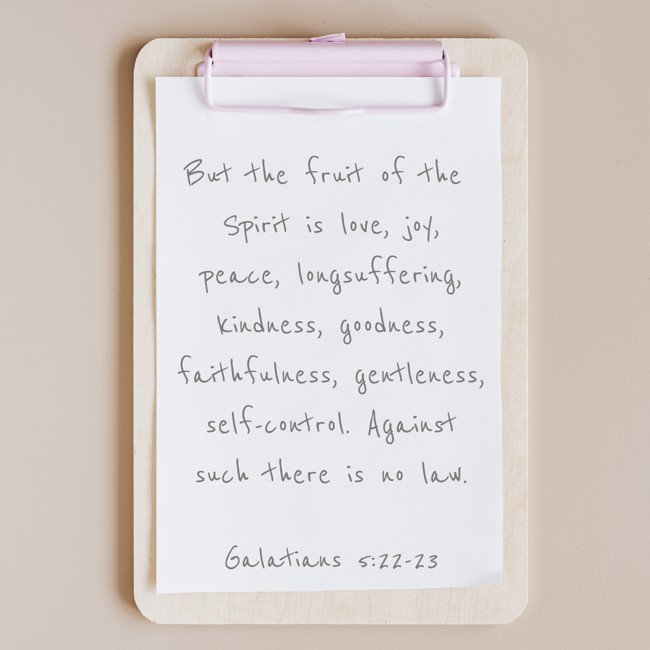 But the fruit of the
Spirit is love, joy,
peace, longsuffering,
kindness, goodness,
faithfulness, gentleness,
self-control. Against
such there is no law.
Galatians 5:22-23